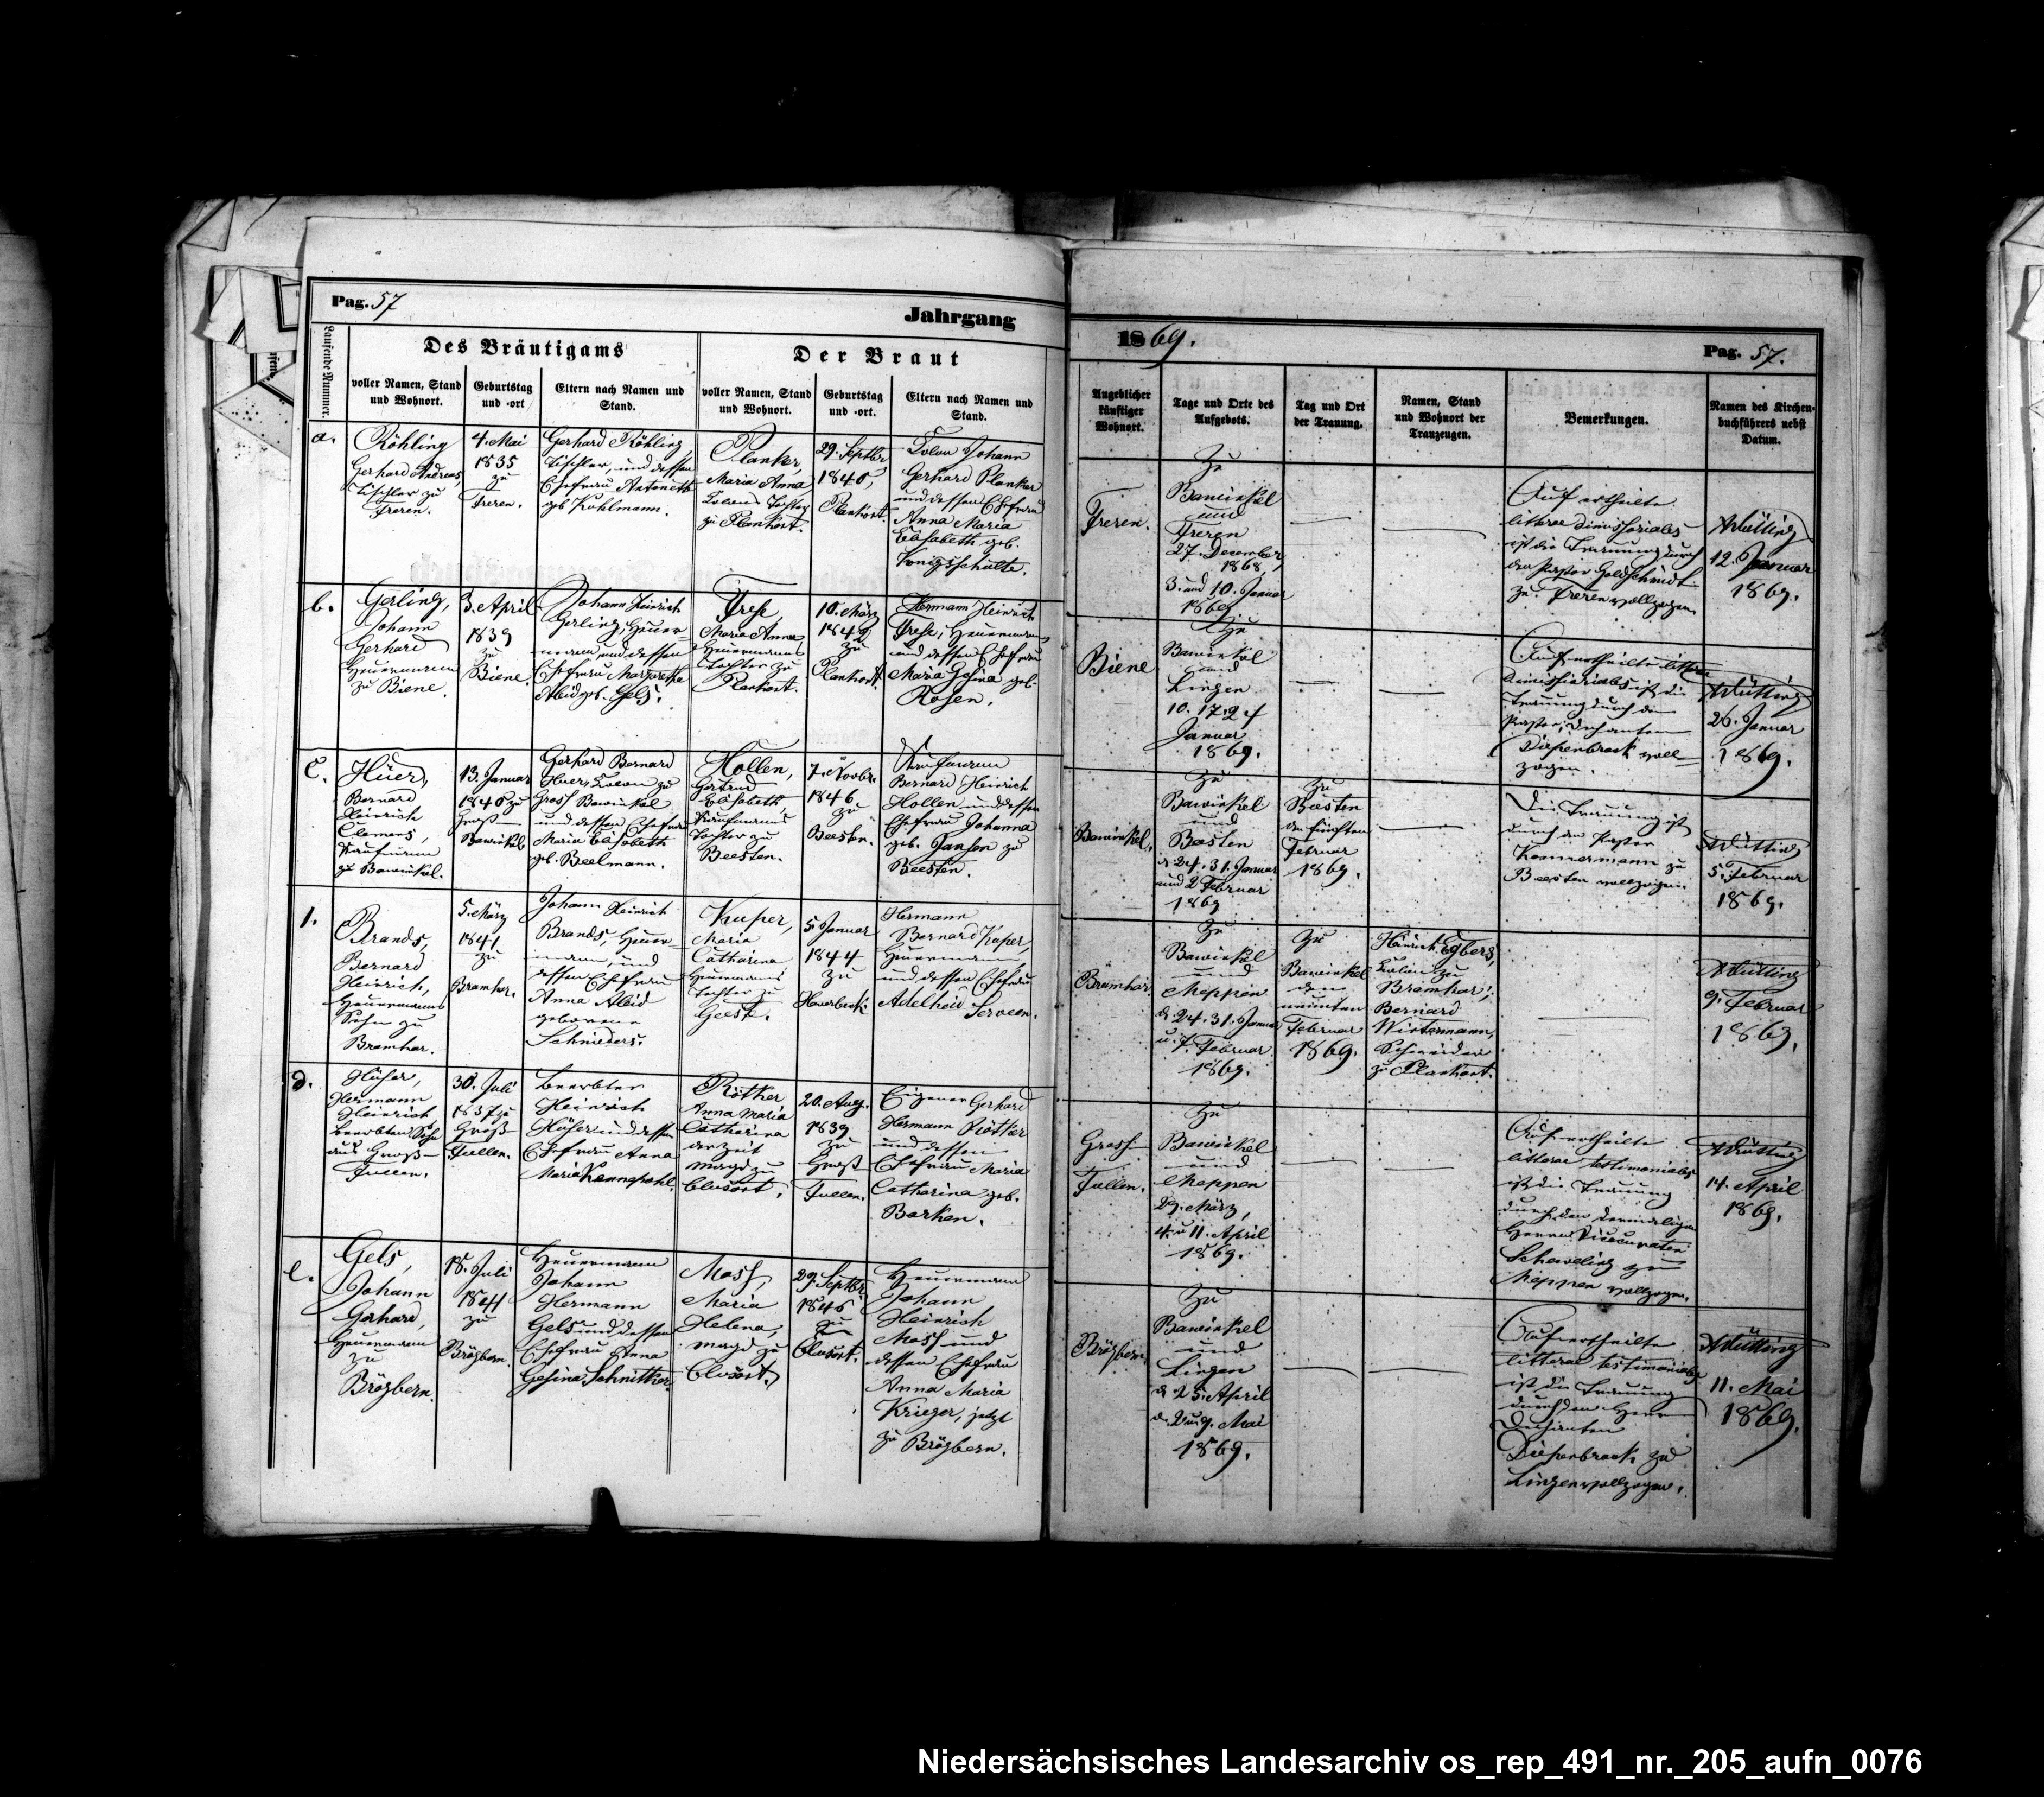 Pag. 57
Jahrgang
Laufende Nummer.
Des Bräutigams
Der Braut
voller Namen, Stand
und Wohnort.
Geburtstag
und =ort
Eltern nach Namen und
Stand.
voller Namen, Stand
und Wohnort.
Geburtstag
und =ort.
Eltern nach Namen und
Stand.
1869.
Pag. 57.
Angeblicher
künftiger
Wohnort.
Tage und Orte des
Aufgebots.
Tag und Ort
der Trauung.
Namen, Stand
und Wohnort der
Trauzeugen.
Bemerkungen.
Namen des Kirchen=
buchführers nebst
Datum.
a.
Röhling
Gerhard Andreas,
Tischler zu
Freren.
4. Mai
1835
zu
Freren.
Gerhard Röhling
Tischler, und dessen
Ehefrau Antoneth
geb Kohlmann.
Planker,
Maria Anna
Colons Tochter
zu Plankort.
29. Septbr
1840,
Plankort.
Colon Johann
Gerhard Planker
und dessen Ehefrau
Anna Maria
Elisabeth geb.
Königsschulte.
Freren.
Zu
Bawinkel
und
Freren
27. December
1868,
3. und 10. Januar
1869.
Auf ertheilte
litterae dimissoriales
ist die Trauung durch
den Pastor Goldschmidt
zu Freren vollzogen.
12. Januar
1869.
b.
Gerling,
Johann
Gerhard
Heuermann
zu Biene.
3. April
1839
zu
Biene.
Johann Heinrich
Gerling, Heuer-
mann und dessen
Ehefrau Margaretha
Aleid geb. Gels.
Frese,
Maria Anna
Heuermanns
Tochter zu
Plankort.
10. März
1842
zu
Plankort.
Hermann Heinrich
Frese, Heuermann
und dessen Ehefrau
Maria Gesina geb.
Rosen.
Biene
Zu
Bawinkel
und
Lingen
10. 17. 24
Januar
1869.
Auf ertheilte litterae
dimissoriales ist die
Trauung durch den
Pastor, Dechanten
Diepenbrock voll-
zogen.
26. Januar
1869.
c.
Hüer,
Bernard
Heinrich
Clemens,
Kaufmann
zu Bawinkel.
13. Januar
1840 zu
Groß
Bawinkel
Gerhard Bernard
Huer, Colon zu
Gross Bawinkel
und dessen Ehefrau
Maria Elisabeth
geb. Beelmann.
Hollen,
Gertrud
Elisabeth,
Kaufmanns
Tochter zu
Beesten.
7. Novbr.
1846
zu
Beesten.
Kaufmann
Bernard Heinrich
Hollen und dessen
Ehefrau Johanna
geb. Jansen zu
Beesten.
Bawinkel.
Zu
Bawinkel
und
Beesten
d 24. 31. Januar
und 2 Februar
1869
Zu
Beesten
den fünften
Februar
1869.
Die Trauung ist
durch den Pastor
zu
Beesten vollzogen.
5. Februar
1869.
1.
Brands,
Bernard
Heinrich,
Heuermanns
Sohn zu
Bramhar.
5. März
1841
zu
Bramhar.
Johann Heinrich
Brands, Heuer-
mann, und
dessen Ehefrau
Anna Aleid
geborene
Schnieders.
Kuper,
Maria
Catharina
Heuermanns
Tochter zu
Geeste.
5. Januar
1844
zu
Haverbeck.
Hermann
Bernard Kuper,
Heuermann,
und dessen Ehefrau
Adelheid Serveen.
Bramhar.
Zu
Bawinkel
und
Meppen
d 24. 31. Januar
u. 7. Februar
1869.
Zu
Bawinkel
den
neunten
Februar
1869.
Heinrich Egbers,
Colon zu
Bramhar;
Bernard
Wistermann,
Schneider
zu Plankort.
9. Februar
1869.
d.
Hüser,
Hermann
Heinrich
Beerbten Sohn
aus Groß-
Fullen.
30. Juli
1837 zu
Groß-
Fullen.
Beerbter
Heinrich
Hüser und dessen
Ehefrau Anna
Maria Kannepohl.
Röther
Anna Maria
Catharina
der Zeit
Magd zu
Clusort.
20. Aug.
1839
zu
Groß
Fullen.
Eigener Gerhard
Hermann Röther
und dessen
Ehefrau Maria
Catharina geb.
Barken.
Gross-
Fullen.
Zu
Bawinkel
und
Meppen
29. März,
4. u 11. April
1869.
Auf ertheilte
litterae testimoniales
ist die Trauung
durch den
Herrn Vicecuraten
zu
Meppen vollzogen.
14. April
1869.
e.
Gels,
Johann
Gerhard,
Heuermann
zu
Brögbern.
18. Juli
1844
zu
Brögbern.
Heuermann
Johann
Hermann
Gels und dessen
Ehefrau Anna
Gesina Schnitker.
Moss,
Maria
Helena,
Magd zu
Clusort.
29. Septbr
1846
zu
Clusort.
Heuermann
Johann
Heinrich
Moss und
dessen Ehefrau
Anna Maria
Krieger, jetzt
zu Brögbern.
Brögbern.
Zu
Bawinkel
und
Lingen
d 25. April
d. 2 u. 9. Mai
1869.
Auf ertheilte
litterae testimoniales
ist die Trauung
durch den Herrn
Dechanten
Diepenbrock zu
Lingen vollzogen.
11. Mai
1869.
Niedersächsisches Landesarchiv os_rep_491_nr._205_aufn_0076